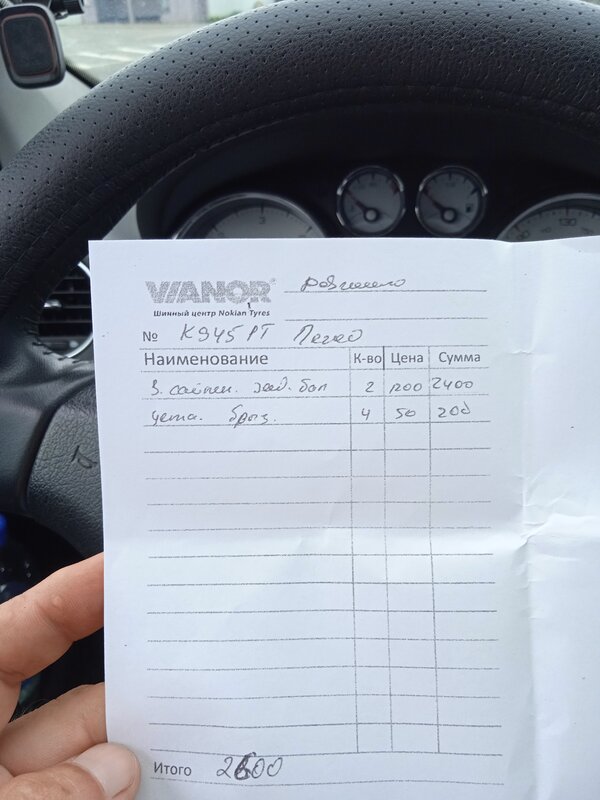 VIANOR
Шинный центр Nokian Tyres
№ К945РТ
Наименование К-во Цена Сумма
З. сайлен. зад. бал 2 1200 2400
4 50 200
Итого 2600